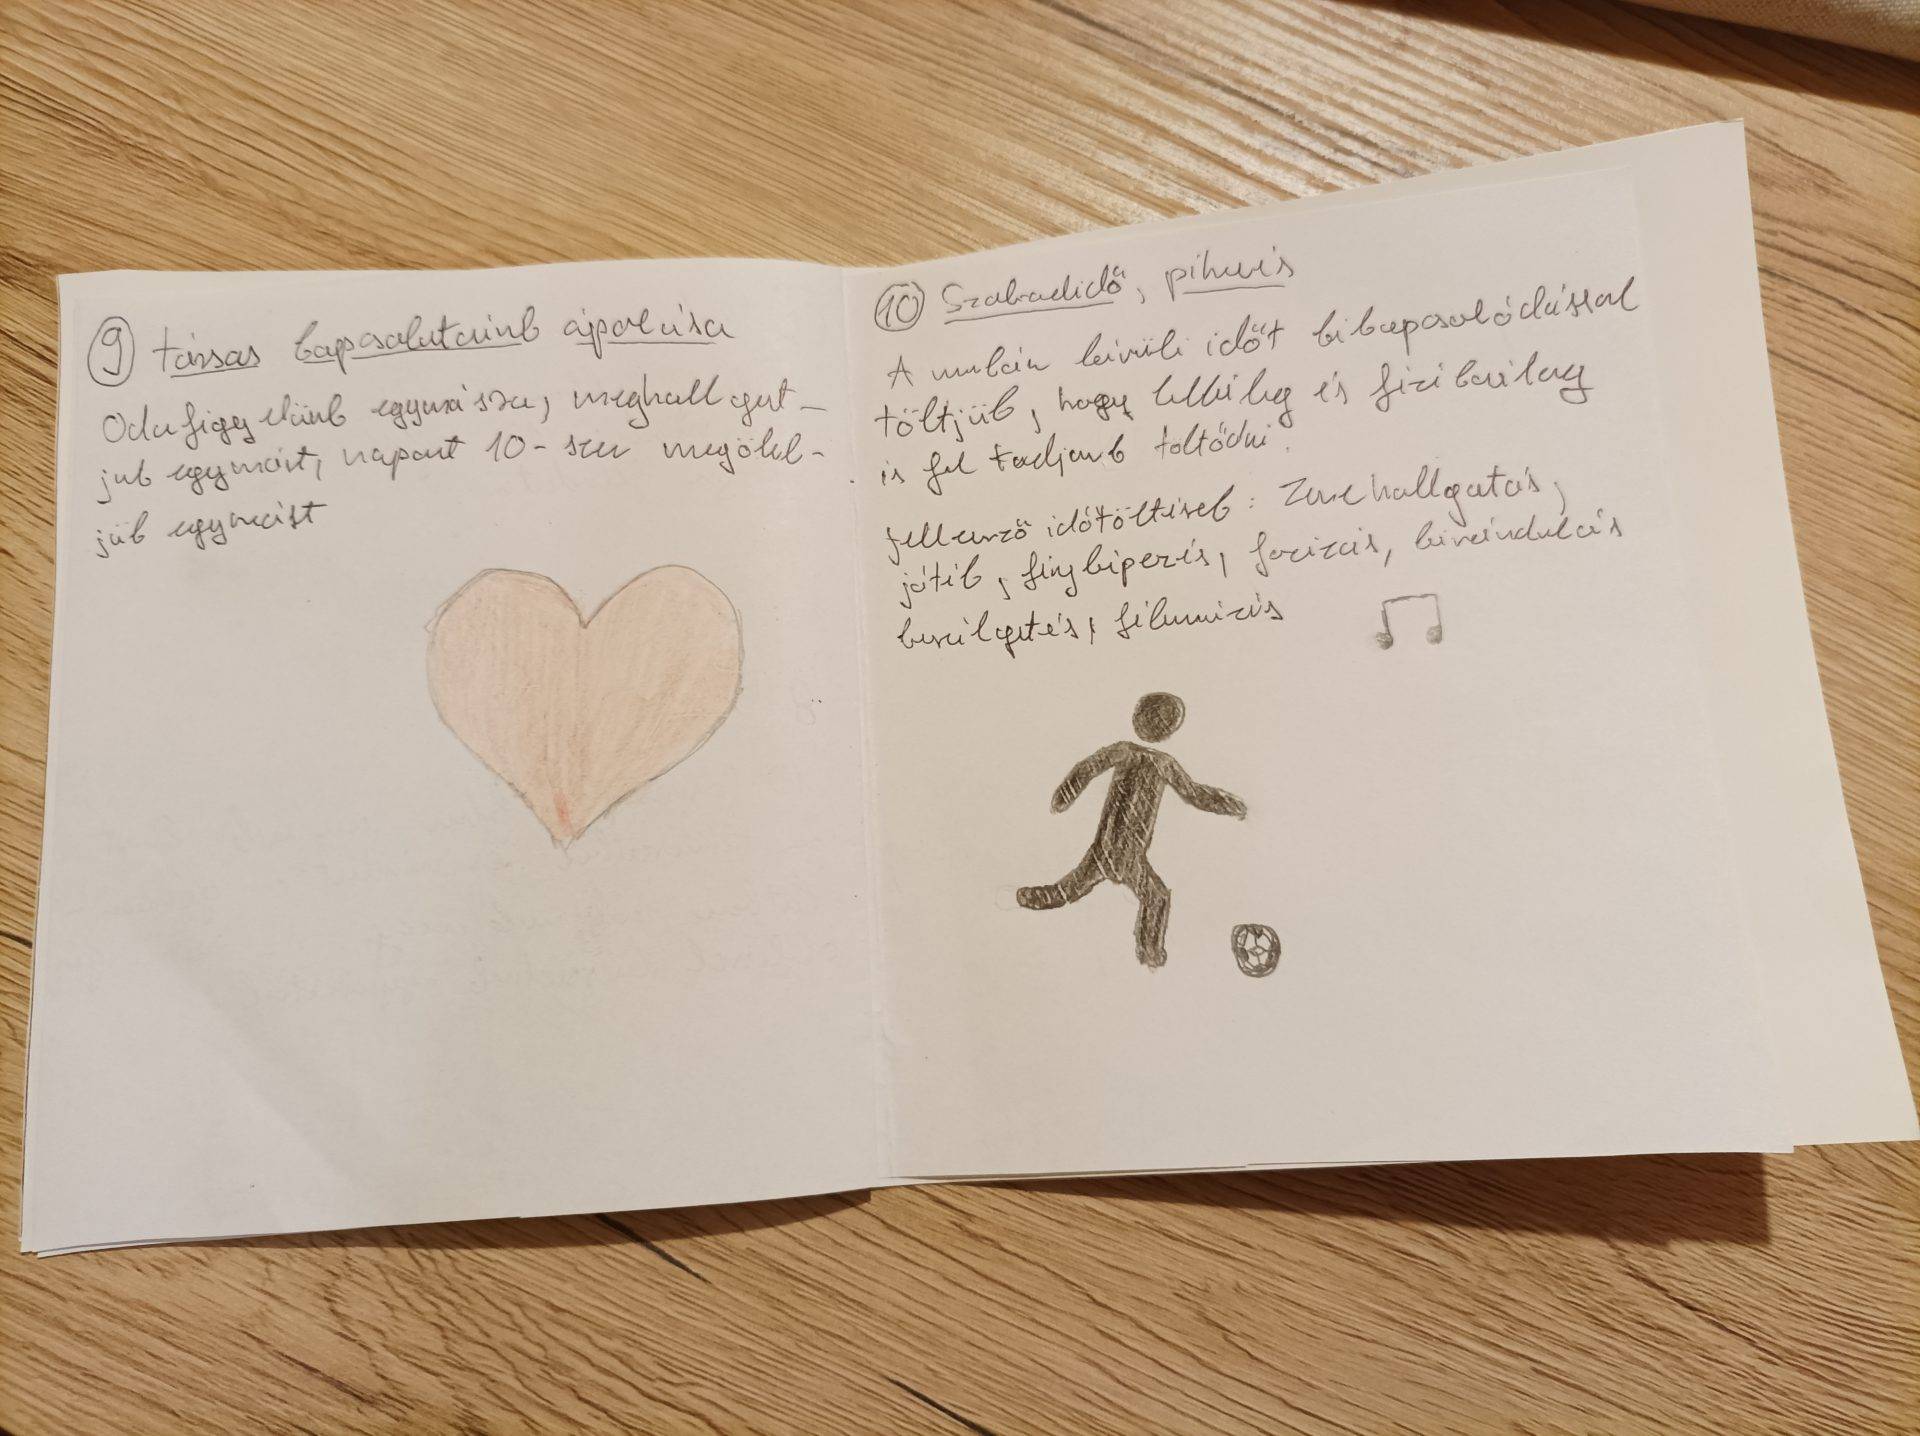 9 társas kapcsolataink ápolása
Odafigyelünk egymásra, meghallgat-
juk egymást, naponta 10-szer megölel-
jük egymást
10 Szabadidő, pihenés
A munkán kívüli időt kikapcsolódással
töltjük, hogy lelkileg és fizikailag
is fel tudjunk töltődni.
Jellemző időtöltések: Zenehallgatás,
játék, fényképezés, focizás, kirándulás
beszélgetés, filmnézés